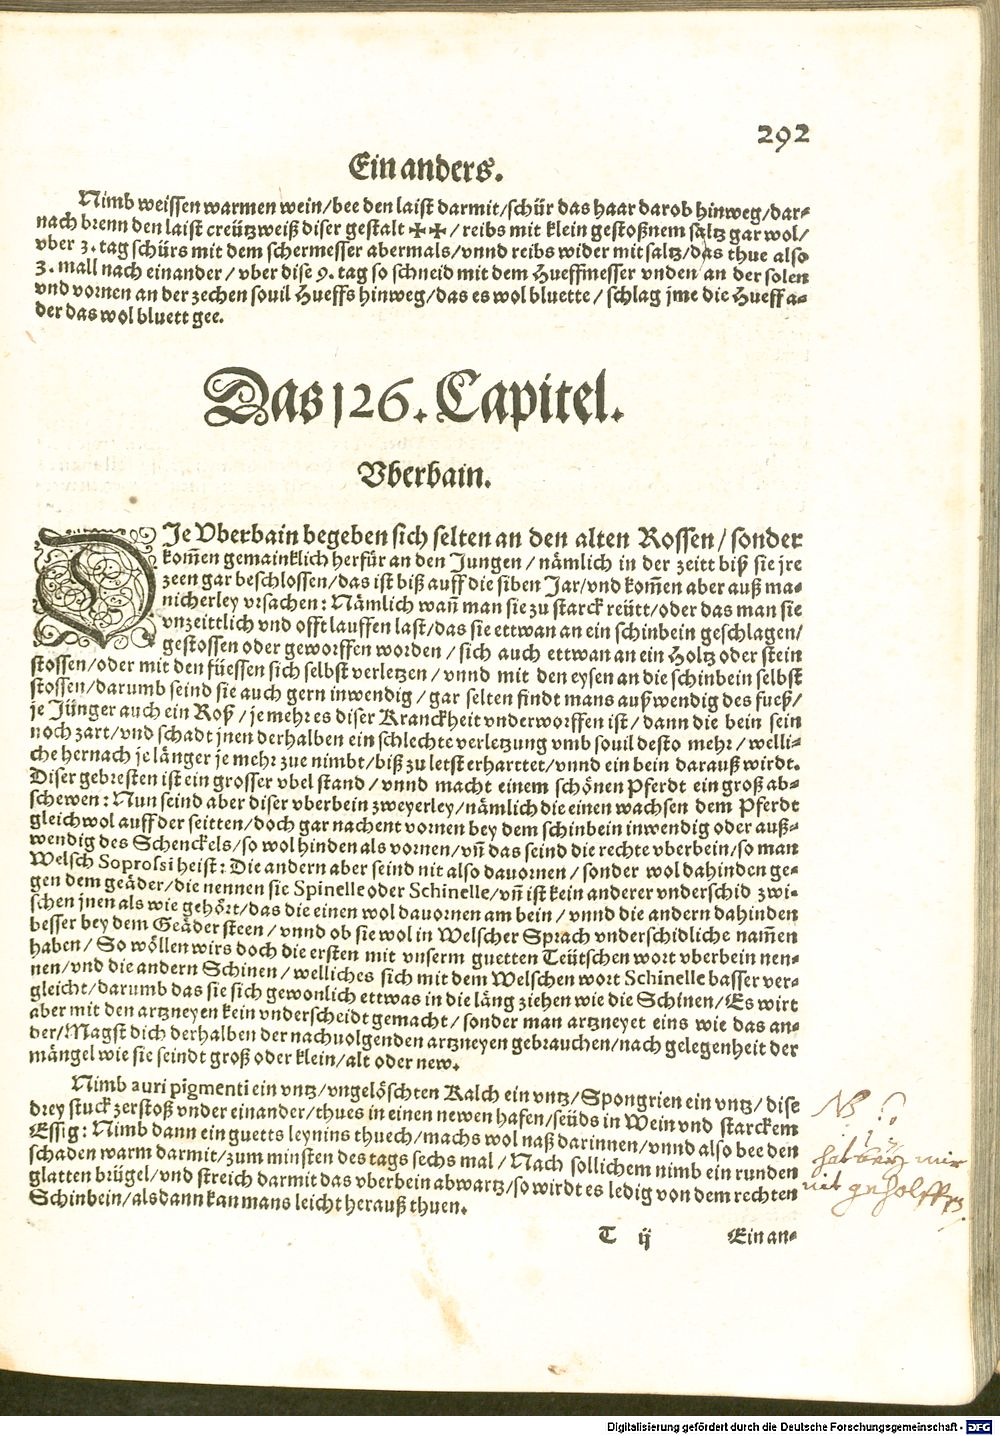 292
Ein anders.
Nimb weissen warmen wein/bee den laist darmit/schür das haar darob hinweg/dar-
nach brenn den laist creützweiß diser gestalt ✠✠/reibs mit klein gestoßnem saltz gar wol/
vber 3. tag schürs mit dem schermesser abermals/vnnd reibs wider mit saltz/das thue also
3. mall nach einander/vber dise 9. tag so schneid mit dem Hueffmesser vnden an der solen
vnd vornen an der zechen souil Hueffs hinweg/das es wol bluette/schlag jme die Hueff a-
der das wol bluett gee.
Das 126. Capitel.
Vberbain.
DIe Vberbain begeben sich selten an den alten Rossen/sonder
kom̄en gemainklich herfür an den Jungen/nämlich in der zeitt biß sie jre
zeen gar beschlossen/das ist biß auff die siben Jar/vnd kom̄en aber auß ma-
nicherley vrsachen: Nämlich wan̄ man sie zu starck reütt/oder das man sie
vnzeittlich vnd offt lauffen last/das sie ettwan an ein schinbein geschlagen/
gestossen oder geworffen worden/sich auch ettwan an ein Holtz oder stein
stossen/oder mit den füessen sich selbst verletzen/vnnd mit den eysen an die schinbein selbst
stossen/darumb seind sie auch gern inwendig/gar selten findt mans außwendig des fueß/
je Jünger auch ein Roß/je mehr es diser Kranckheit vnderworffen ist/dann die bein sein
noch zart/vnd schadt jnen derhalben ein schlechte verletzung vmb souil desto mehr/welli-
che hernach je länger je mehr zue nimbt/biß zu letst erharttet/vnnd ein bein darauß wirdt.
Diser gebresten ist ein grosser vbel stand/vnnd macht einem schönen Pferdt ein groß ab-
schewen: Nun seind aber diser vberbein zweyerley/nämlich die einen wachsen dem Pferdt
gleichwol auff der seitten/doch gar nachent vornen bey dem schinbein inwendig oder auß-
wendig des Schenckels/so wol hinden als vornen/vn̄ das seind die rechte vberbein/so man
Welsch Soprossi heist: Die andern aber seind nit also dauornen/sonder wol dahinden ge-
gen dem geäder/die nennen sie Spinelle oder Schinelle/vn̄ ist kein anderer vnderschid zwi-
schen jnen als wie gehört/das die einen wol dauornen am bein/vnnd die andern dahinden
besser bey dem Geäder steen/vnnd ob sie wol in Welscher Sprach vnderschidliche nam̄en
haben/So wöllen wirs doch die ersten mit vnserm guetten Teütschen wort vberbein nen-
nen/vnd die andern Schinen/welliches sich mit dem Welschen wort Schinelle basser ver-
gleicht/darumb das sie sich gewonlich ettwas in die läng ziehen wie die Schinen/Es wirt
aber mit den artzneyen kein vnderscheidt gemacht/sonder man artzneyet eins wie das an-
der/Magst dich derhalben der nachuolgenden artzneyen gebrauchen/nach gelegenheit der
mängel wie sie seindt groß oder klein/alt oder new.
Nimb auri pigmenti ein vntz/vngelöschten Kalch ein vntz/Spongrien ein vntz/dise
drey stuck zerstoß vnder einander/thues in einen newen hafen/seüds in Wein vnd starckem
Essig: Nimb dann ein guetts leynins thuech/machs wol naß darinnen/vnnd also bee den
schaden warm darmit/zum minsten des tags sechs mal/Nach sollichem nimb ein runden
glatten brügel/vnd streich darmit das vberbein abwartz/so wirdt es ledig von dem rechten
Schinbein/alsdann kan mans leicht herauß thuen.
NB
hat mir
nit geholffen
T ij
Ein an-
Digitalisierung gefördert durch die Deutsche Forschungsgemeinschaft - DFG